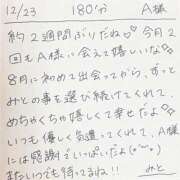 12/23 180分 A様
約2週間ぶりだね♡今月2
回もA様に会えて嬉しいな♡
8月に初めて出会ってから、ずっと
みとの事を選び続けてくれて、
めちゃくちゃ嬉しくて幸せだよ♡
いつも優しく気遣ってくれて、A様
には感謝でいっぱいだよ(*´ー`*)
またいつでも待ってるね!!
みと